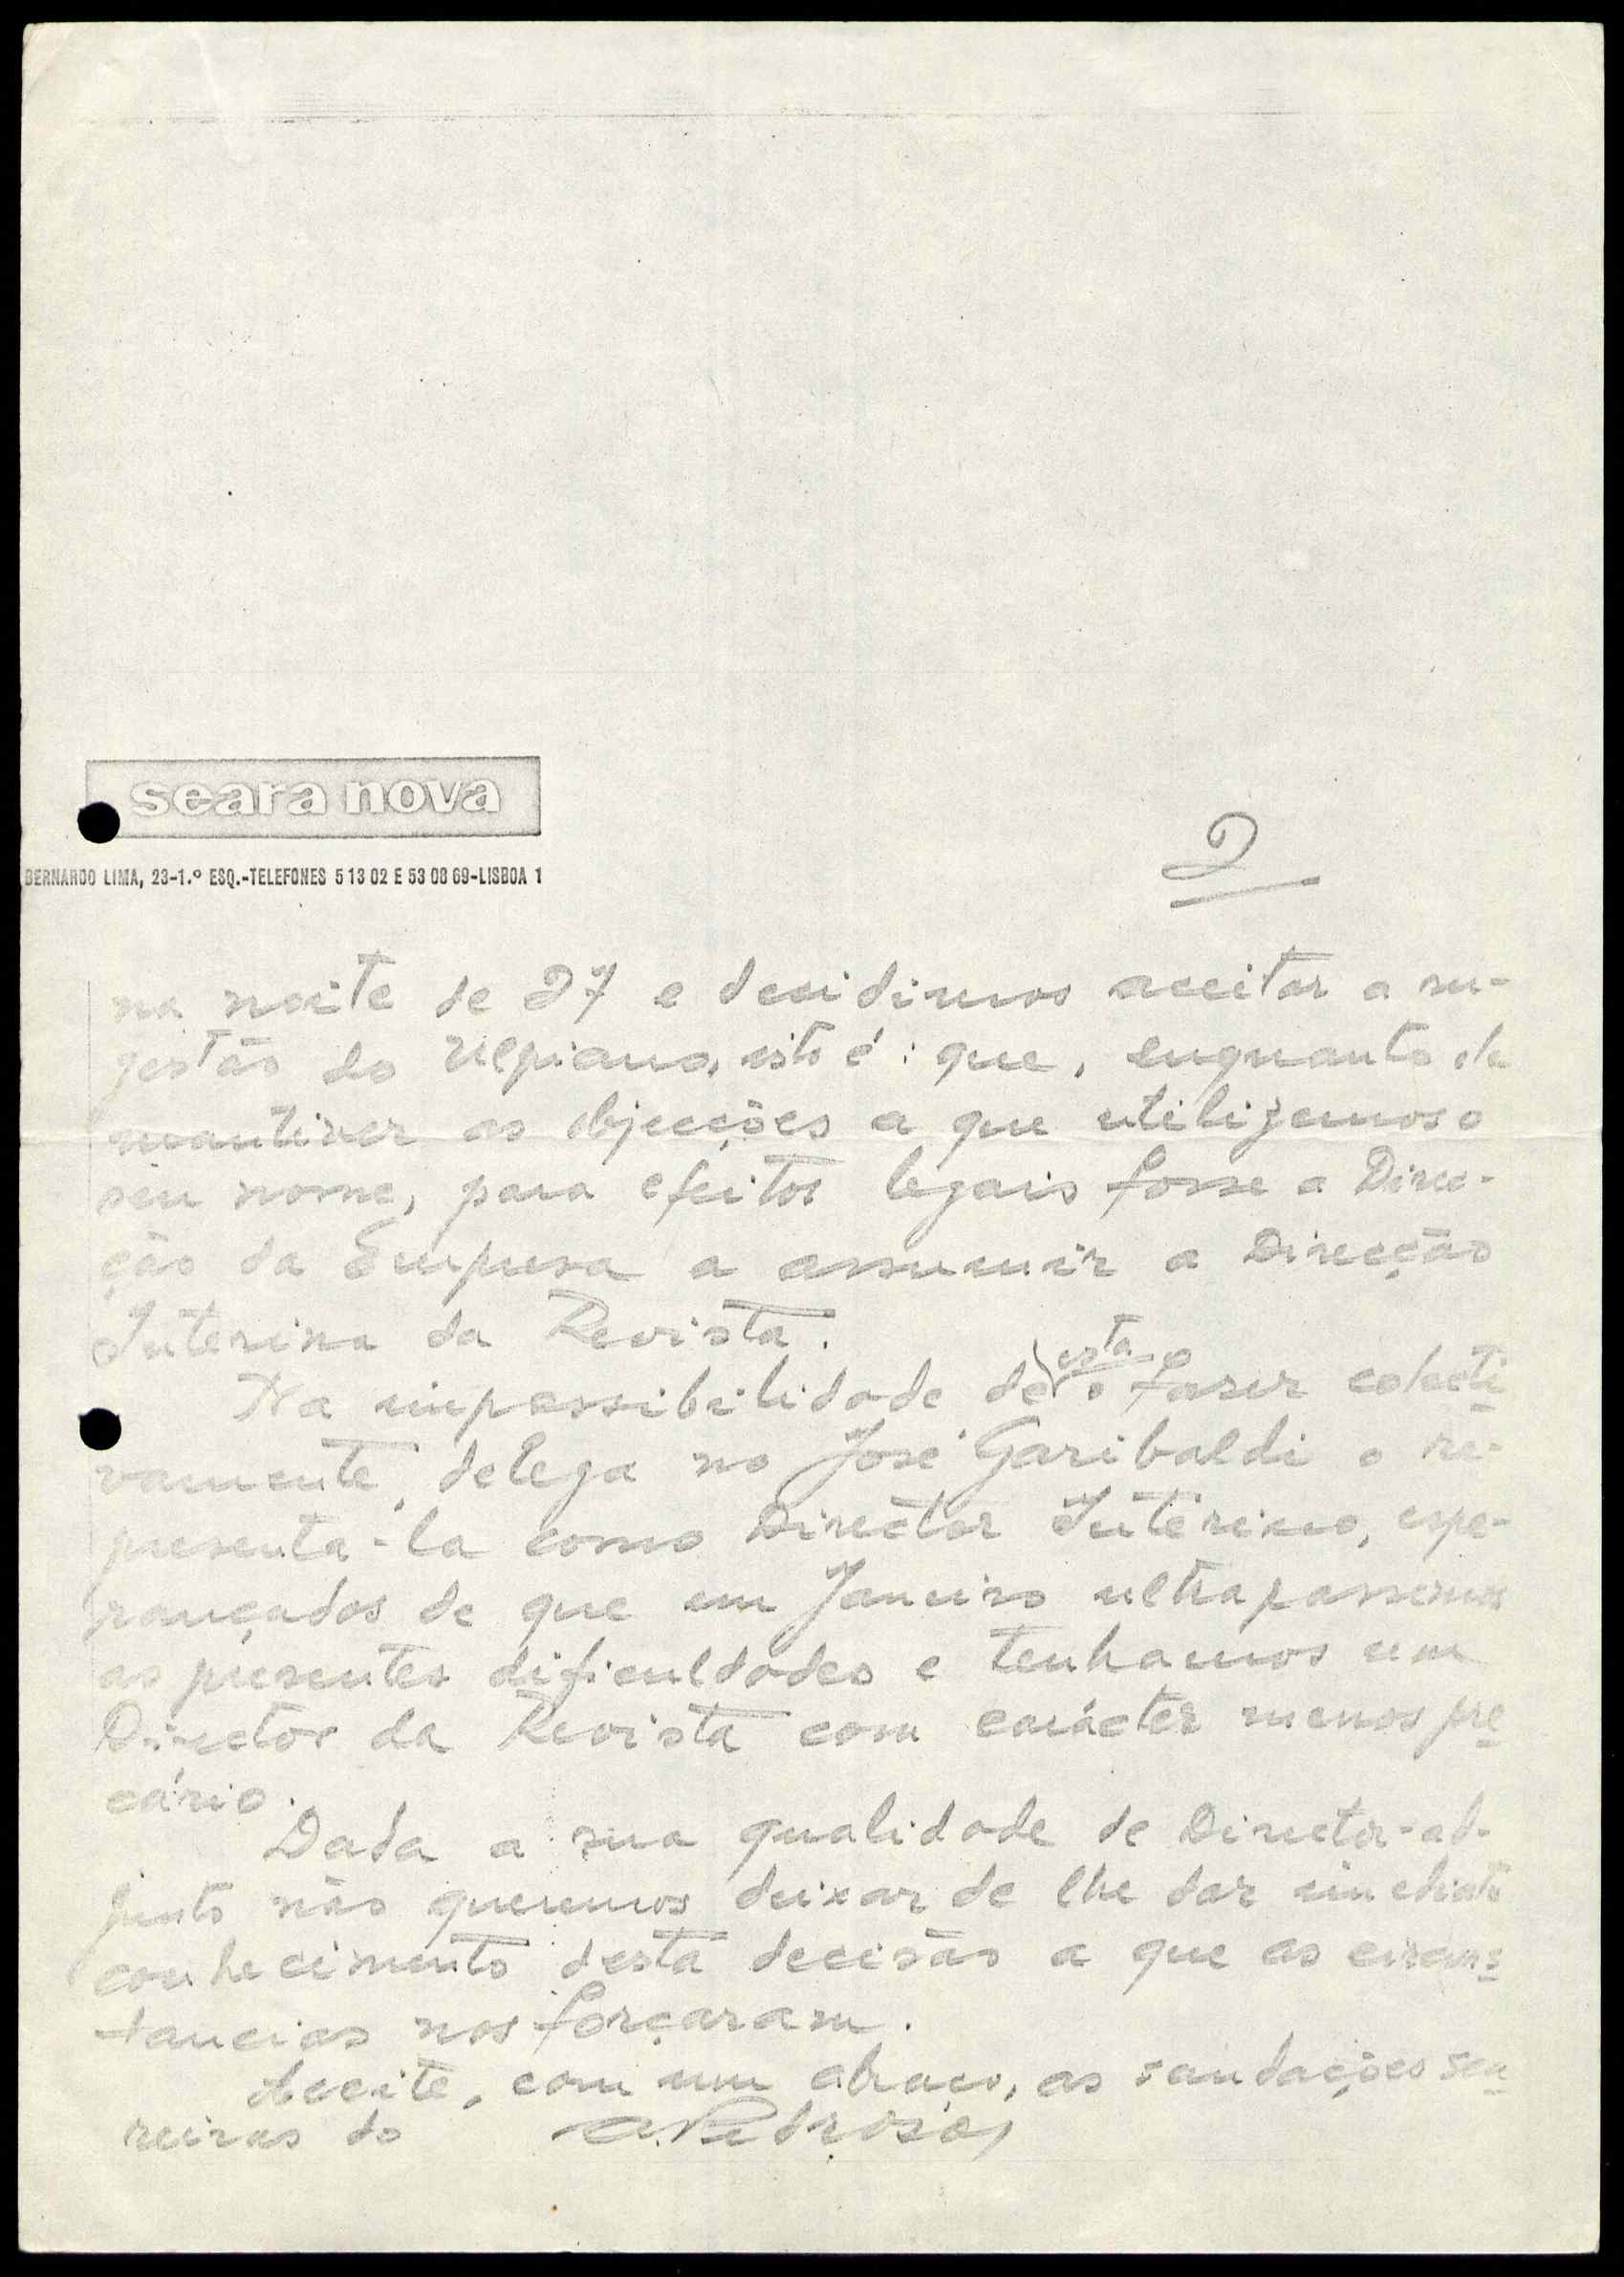 seara nova
BERNARDO LIMA, 23-1.º ESQ.-TELEFONES 5 13 02 E 53 08 69-LISBOA 1
2
na noite de 27 e decidimos aceitar a su-
gestão do Ulpiano, isto é: que, enquanto ele
mantiver as objecções a que utilizemos o
seu nome, para efeitos legais fosse a Direc-
ção da Empresa a assumir a Direcção
Interina da Revista.
Na impossibilidade de esta o fazer colecti
vamente, delega no José Garibaldi o re-
presentá-la como Director Interino, espe-
rançados de que em Janeiro ultrapassemos
as presentes dificuldades e tenhamos um
Director da Revista com carácter menos pre
cário.
Dada a sua qualidade de Director-ad-
junto não queremos deixar de lhe dar imediato
conhecimento desta decisão a que as circuns
tancias nos forçaram.
Aceite, com um abraço, as saudações sea
reiras do A. Pedroso